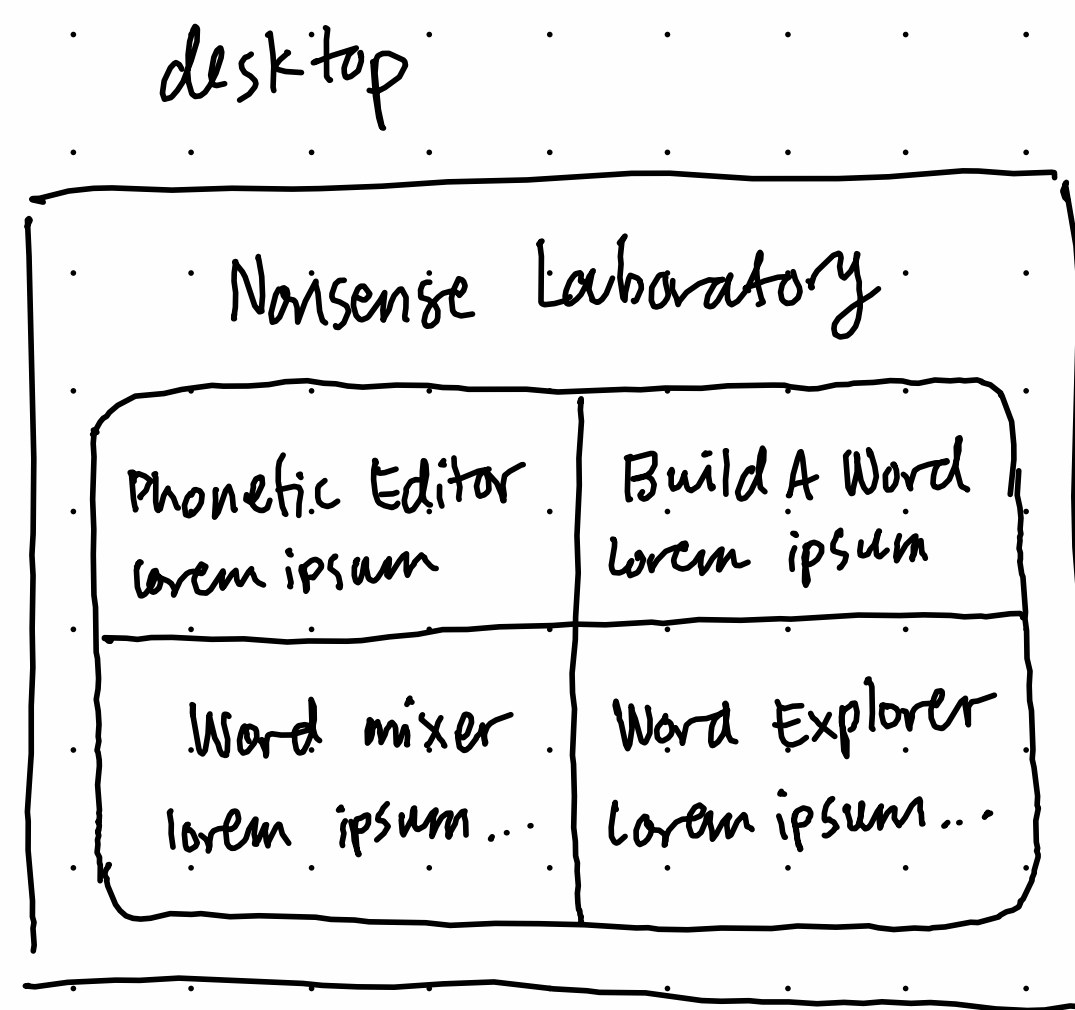 desktop
Nonsense Laboratory
Phonetic Editor
lorem ipsum
Build A Word
lorem ipsum
Word mixer
lorem ipsum...
Word Explorer
Lorem ipsum...